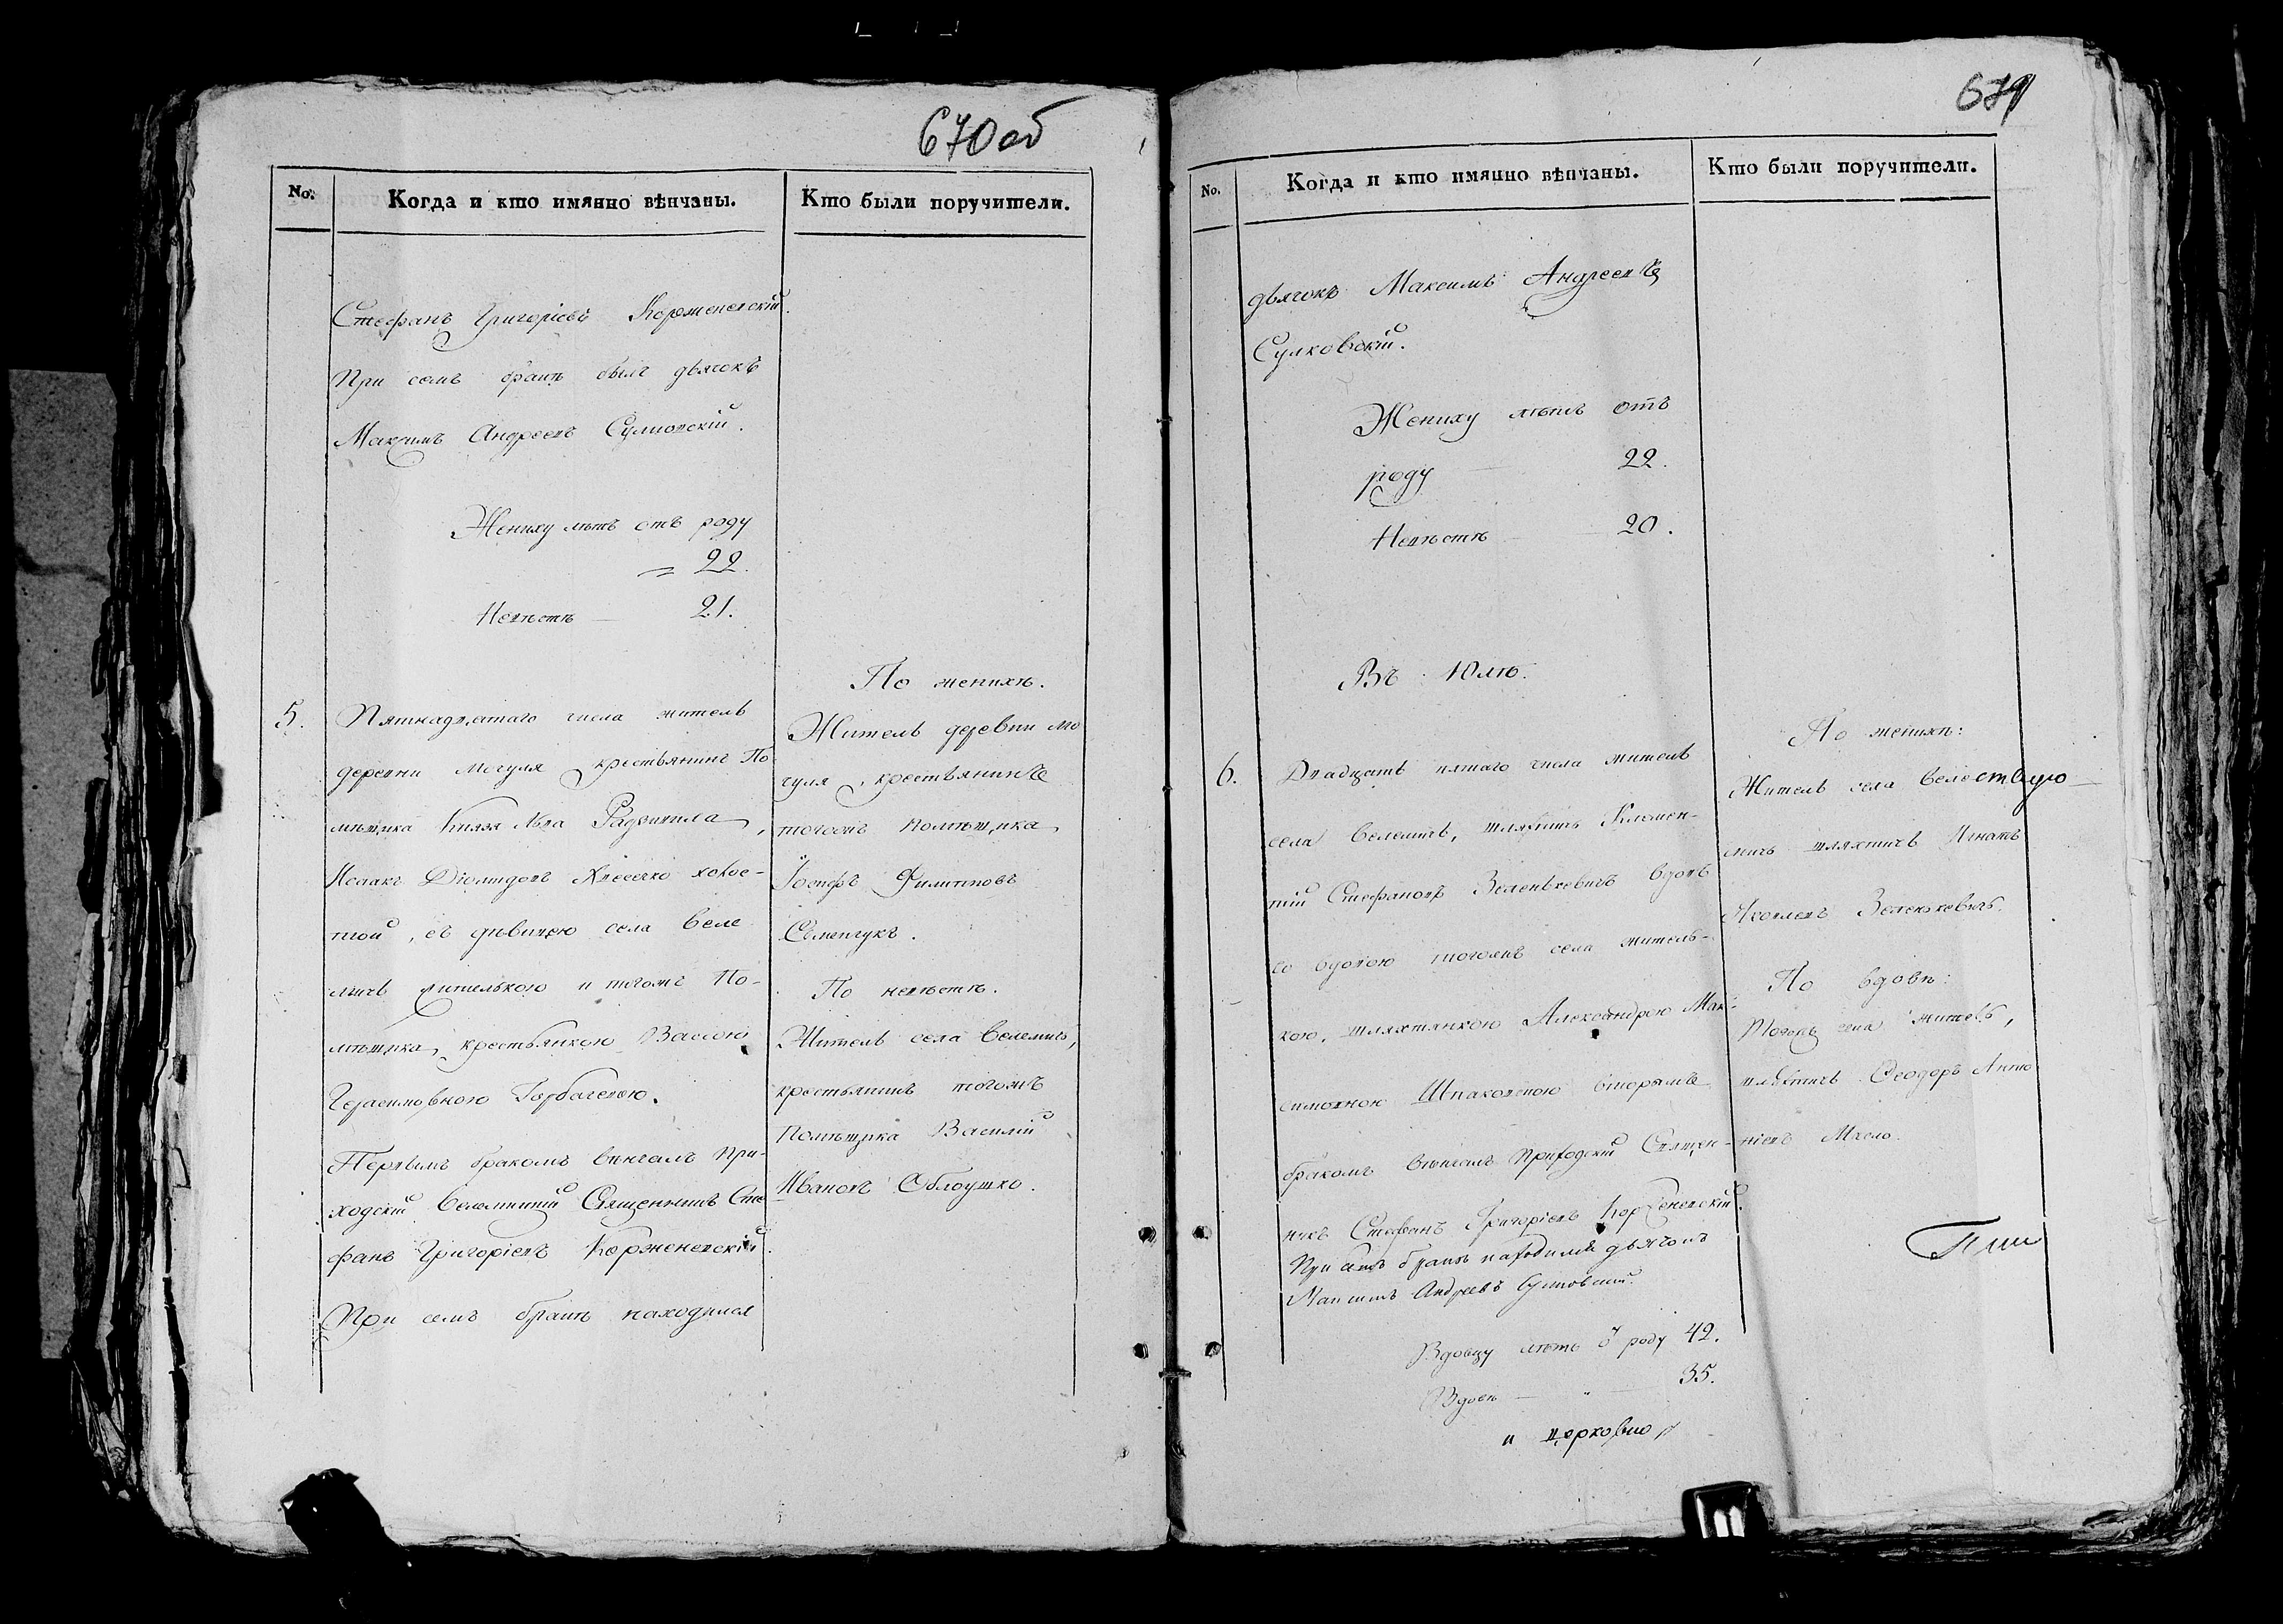 670 об
No.
Когда и кто имянно вѣнчаны.
Кто были поручители.
Стефанъ Григоріевъ Корженевскій.
При семъ бракѣ былъ дьячокъ
Максимъ Андреевъ Сулковскій.
Жениху лѣтъ отъ роду
22.
Невѣстѣ — 21.
5.
Пятнадцатаго числа житель
деревни Могуля крестьянинъ По
мѣщика Князя Льва Радзивила,
Исаакъ холос-
той, съ дѣвицею села Веле
мичъ жителькою и тогожъ По-
мѣщика, крестьянкою Вассою
Герасимовною Горбачевою.
Первымъ бракомъ вѣнчалъ При-
ходскій Велемицкій Священникъ Сте
фанъ Григоріевъ Корженевскій.
При семъ бракѣ находился
По женихѣ.
Житель деревни Мо
гуля, крестьянинъ
тогожъ Помѣщика
Іосифъ Филиповъ
Семенчукъ.
По невѣстѣ.
Житель села Велемичъ,
крестьянинъ тогожъ
Помѣщика Василій
Ивановъ Облоушко.
671
No.
Когда и кто имянно вѣнчаны.
Кто были поручители.
дьячокъ Максимъ Андреевъ
Сулковскій.
Жениху лѣтъ отъ
роду — 22.
Невѣстѣ — 20.
Въ Юлѣ.
6.
Двадцать пятаго числа житель
села Велемичъ, шляхтичъ Климен-
тій Стефановъ Зеленкевичъ вдовъ
со вдовою тогожъ села житель-
кою, шляхтянкою Александрою Мак-
симовною Шпаковскою вторымъ
бракомъ вѣнчалъ Приходскій Священ-
никъ Стефанъ Григоріевъ Корженевскій.
При семъ бракѣ находился дьячокъ
Максимъ Андреевъ Сулковскій.
Вдовцу лѣтъ ѿ роду 42.
Вдовѣ — " — 35.
и церковно
По женихѣ:
Житель села Веле
мичъ шляхтичъ Игнатъ
Яковлевъ Зеленкевичъ.
По вдовѣ:
Тогожъ села житель,
шляхтичъ Ѳеодоръ Анто
ніевъ Мысло.